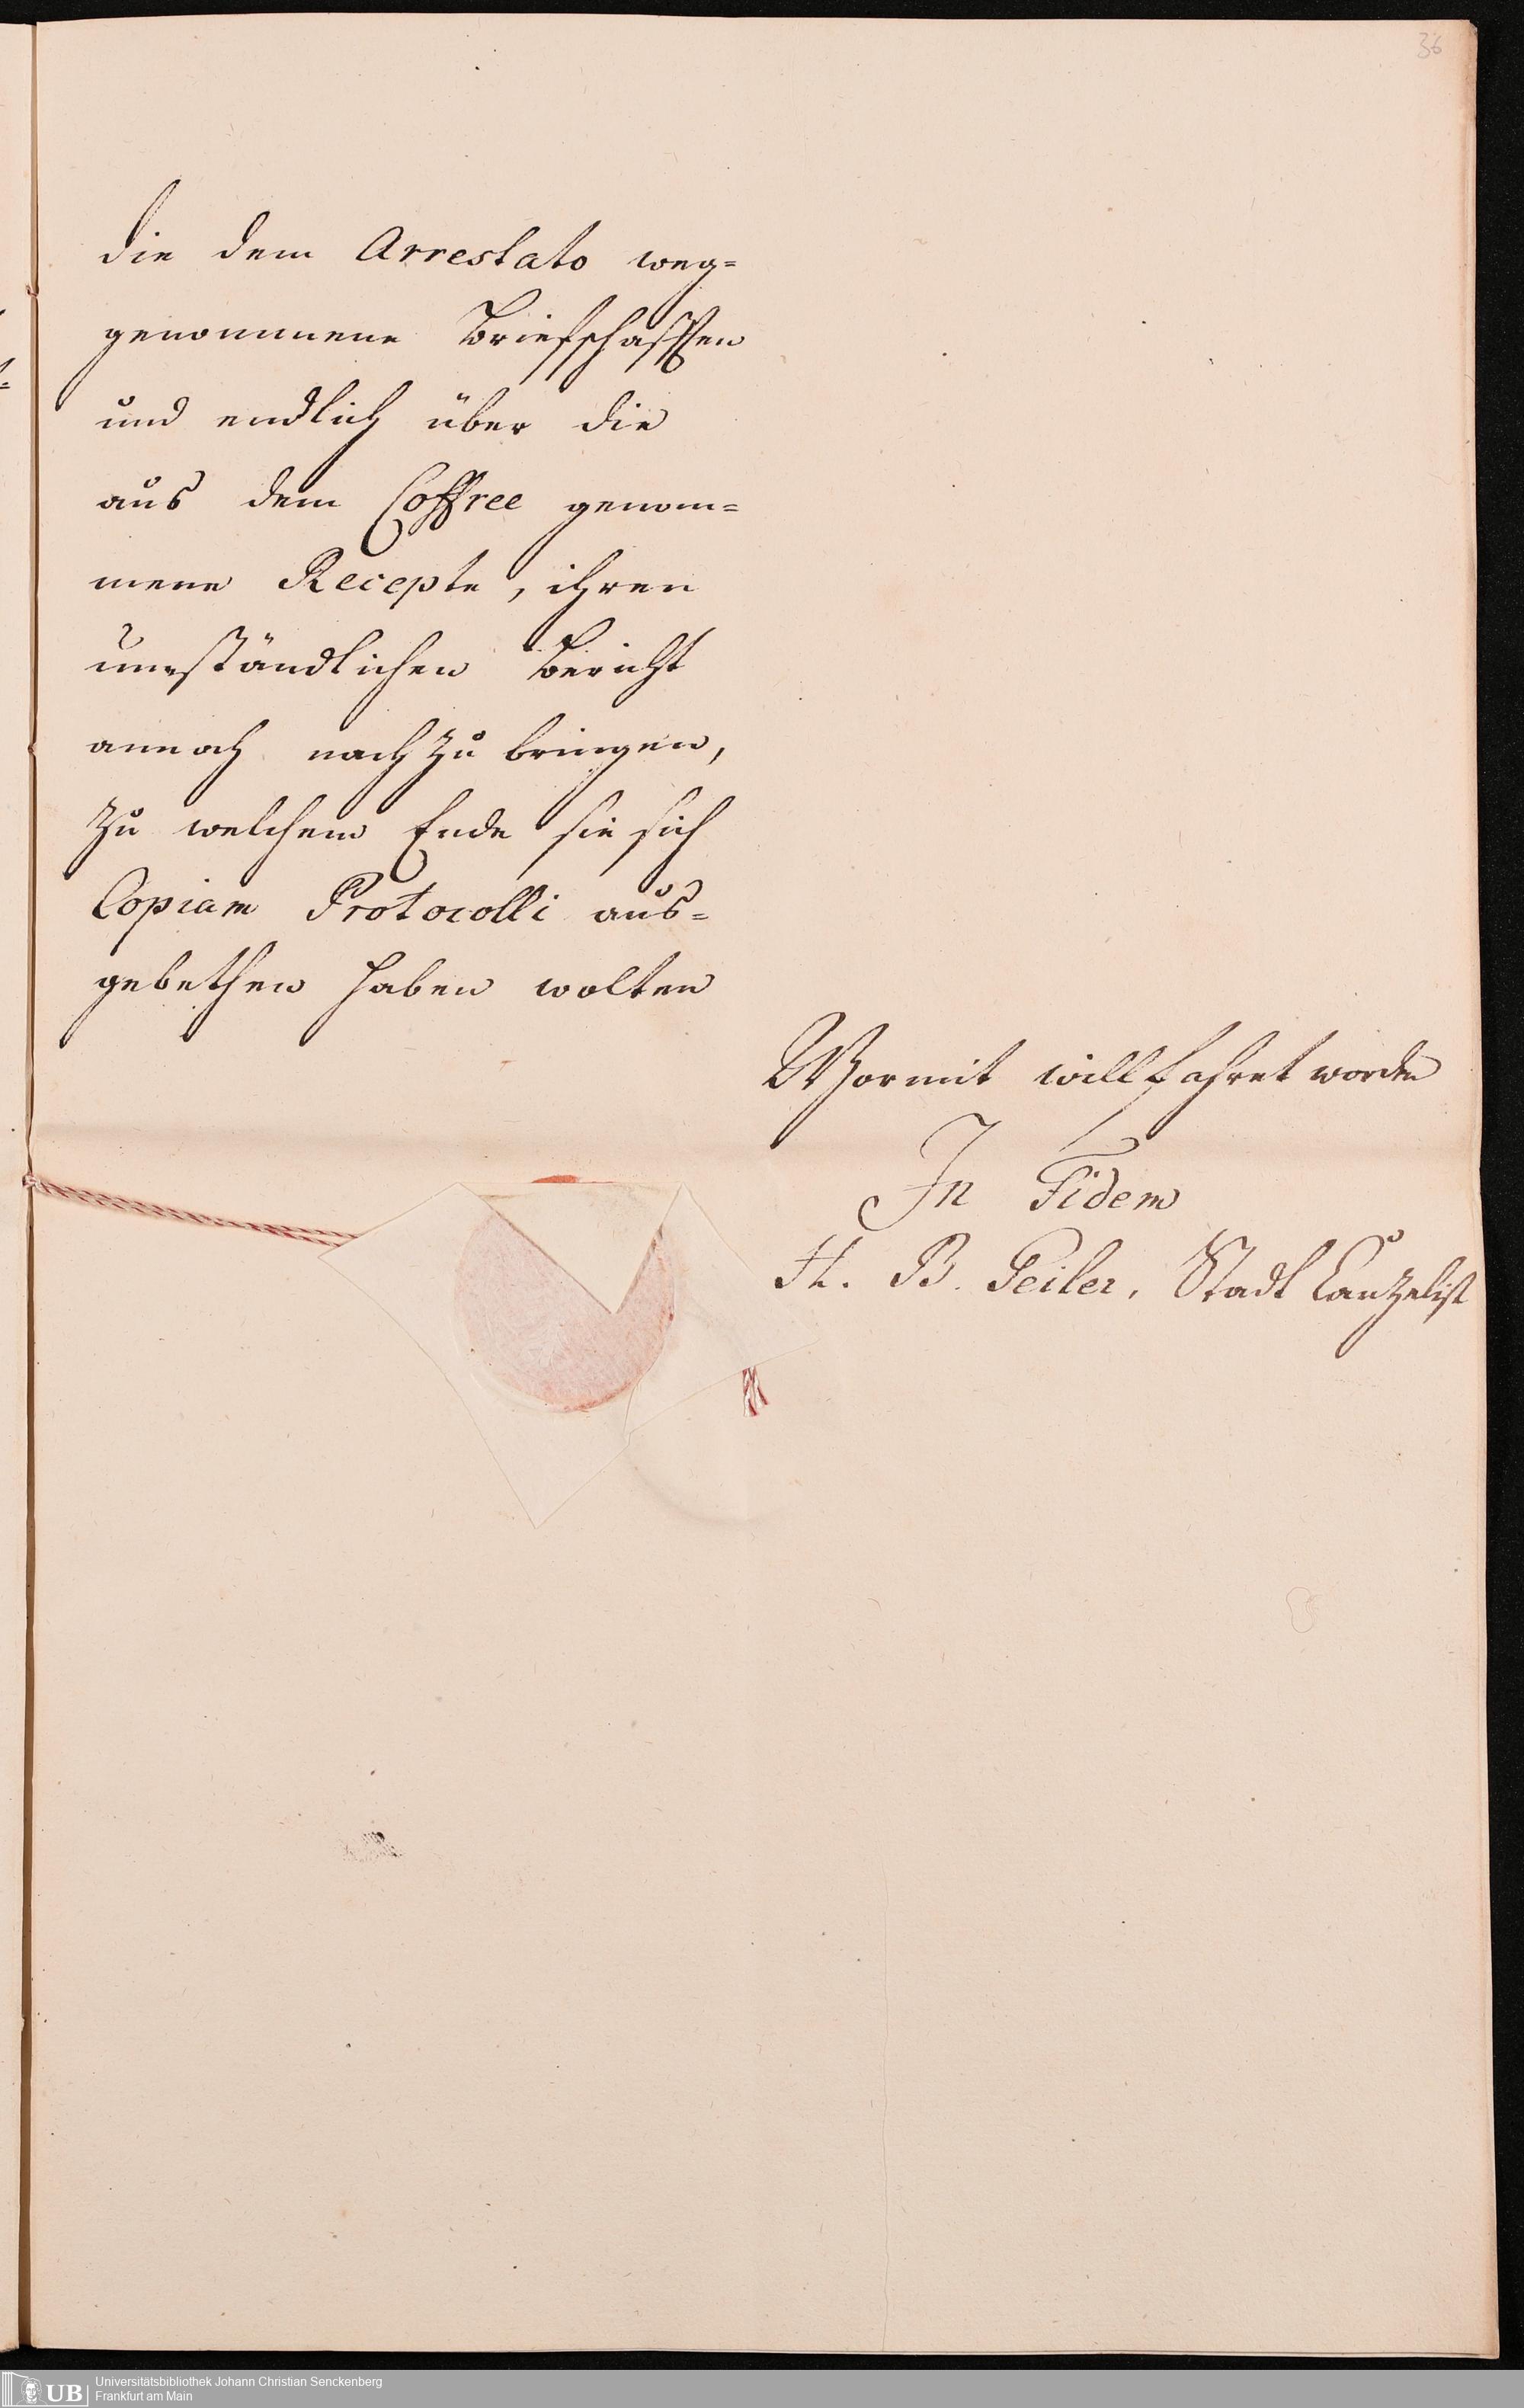 36
die dem Arrestato weg=
genommene Briefschafften
und endlich über die
aus dem Coffree genom=
mene Recepte, ihren
umständlichen Bericht
annoch nach zu bringen,
zu welchem Ende sie sich
Copiam Protocolli aus=
gebethen haben wolten
Wormit willfahret worden
In Fidem
H. B. Seiler, Stadt Canzelist
UB Universitätsbibliothek Johann Christian Senckenberg
Frankfurt am Main